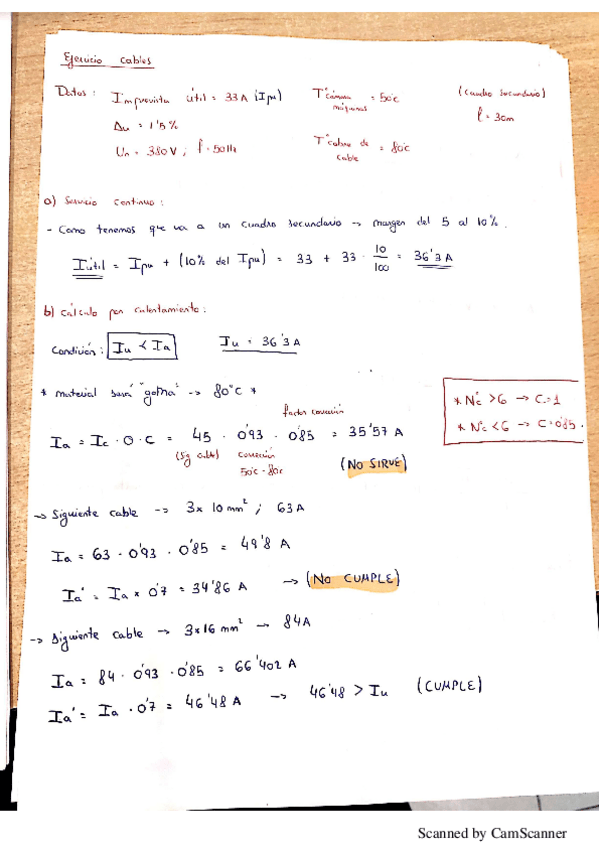 Ejercicio cables
Datos: Imprevista útil = 33A (Ipu) Tª cámara máquinas = 50ºC (cuadro secundario)
Δu = 1'5% l = 30m
Un = 380V ; f = 50Hz Tª cobre de cable = 80ºC
a) Servicio continuo:
- Como tenemos que va a un cuadro secundario → margen del 5 al 10%.
Iútil = Ipu + (10% del Ipu) = 33 + 33 · 10/100 = 36'3A
b) Cálculo por calentamiento:
Condición: Iu < Ia Iu = 36'3A
* material será "goma" -> 80ºC *
* Nºc > 6 → C=1
* Nºc < 6 → C=0'85.
factor corrección
Ia = Ic · O · C = 45 · 0'93 · 0'85 = 35'57 A
corrección
50ºC-80ºC
(NO SIRVE)
→ Siguiente cable -> 3x10mm² ; 63A
Ia = 63 · 0'93 · 0'85 = 49'8 A
Ia' = Ia x 0'7 = 34'86 A → (NO CUMPLE)
-> Siguiente cable → 3x16 mm² → 84A
Ia = 84 · 0'93 · 0'85 = 66'402 A
Ia' = Ia · 0'7 = 46'48 A -> 46'48 > Iu (CUMPLE)
Scanned by CamScanner